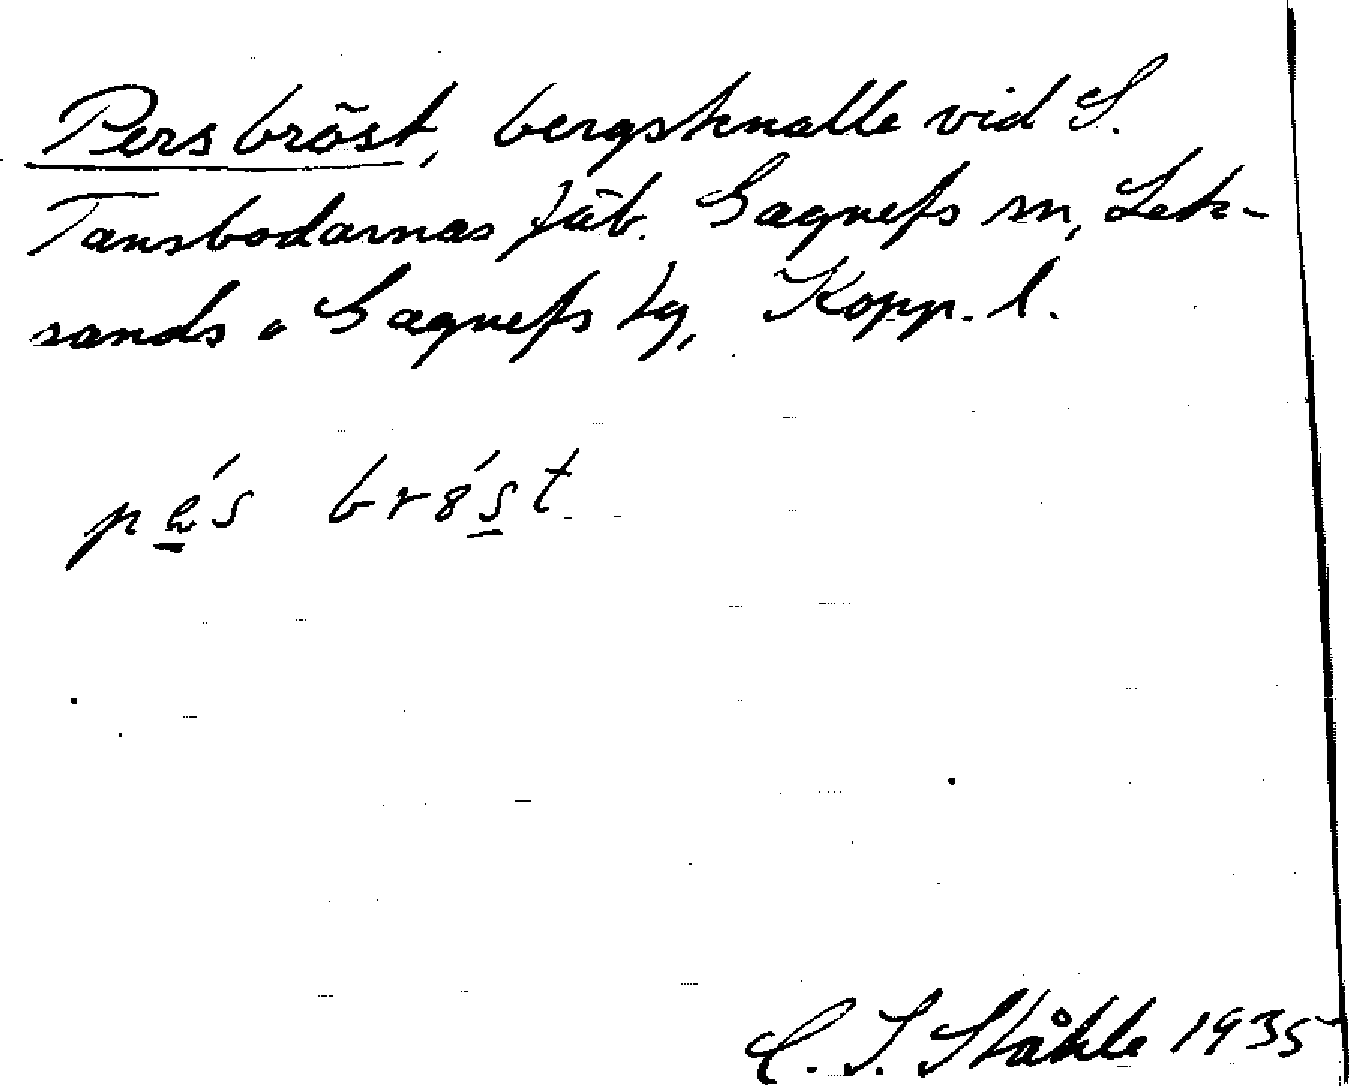 Pers bröst, bergsknalle vid S.
Tansbodarnas fäb. Gagnefs sn, Lek-
sands o Gagnefs tg, Kopp. l.
pe̲´s brö´s̲t
C. I. Ståhle 1935